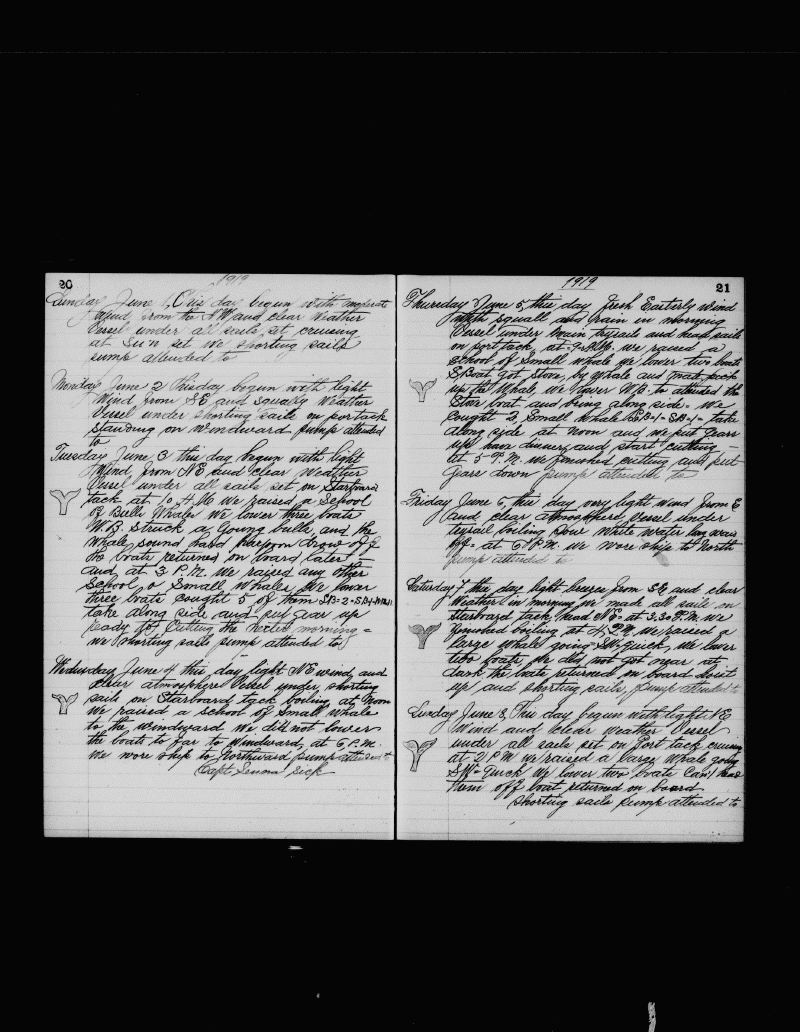 20
1919
Sunday June 1, This day begun with moderate
Wind from the NW and clear Weather
Vessel under all sails set cruising
at Sun set we shorting sails
pump attended to
Monday June 2 thisday begun with light
Wind from SE and squaly Weather
Vessel under shorting sails on portack
standing on windward pump attended
to
Tuesday June 3 this day begun with light
Wind from NE and clear Weather
Vessel under all sails set on Starboard
tack at 10 A.M. we raised a School
of Bulls Whales we lower three boats
W.B. struck a young bulls, and the
Whale sound hard harpoon draw off
the boats returned on board later
and at 3 P.M. we raised any other
School, a Small Whales we lower
three boats cought 5 of them SB=2=
take along side and put gear up
ready for Cutting the next morning =
we shorting sails pump attended to
Wednesday June 4 this day light NE wind and
clear atmosphere Vessel under shorting
sails on Starboard tack boiling at Noon
We raised a school of Small Whale
to the windward we did not lower
the boats to far to windward, at 6 P.M.
We wore ship to Northward pump attended to
Capt Senna sick
1919
21
Thursday June 5, this day fresh Easterly wind
with squall and rain in morning
Vessel under main trysail and head sails
on port tack at 9 A.M. we raised a
school of Small whale we lower two boats
S.Boat got Stove by Whale and
up the Whale we lower W.B. to attended the
Stove boat and bring along side. We
cought 2 Small Whale take
along side at noon and we put gear
up have dinner and start cutting
at 5 P.M. we finished cutting and put
gear down pump attended to
Friday June 6, this day very light Wind from E
and clear atmosphere Vessel under
trysail boiling four White water
at 6 P.M. we wore ship to North
pump attended to
Saturday 7 this day light breeze from SE and clear
Weather in morning we made all sails on
Starboard tack head NE at 3.30 P.M. we
finished boiling at 4 P.M. We raised a
large Whale going SW quick, we lower
two boats we did not got near at
dark the boats returned on board hoist
up and shorting sails, pump attended to
Sunday June 8, This day begun with light NE
Wind and clear weather Vessel
under all sails set on Port tack cruising
at 2 P.M. we raised a large Whale going
SW quick We lower two boats Can't head
them off boat returned on board
Shorting sails pump attended to